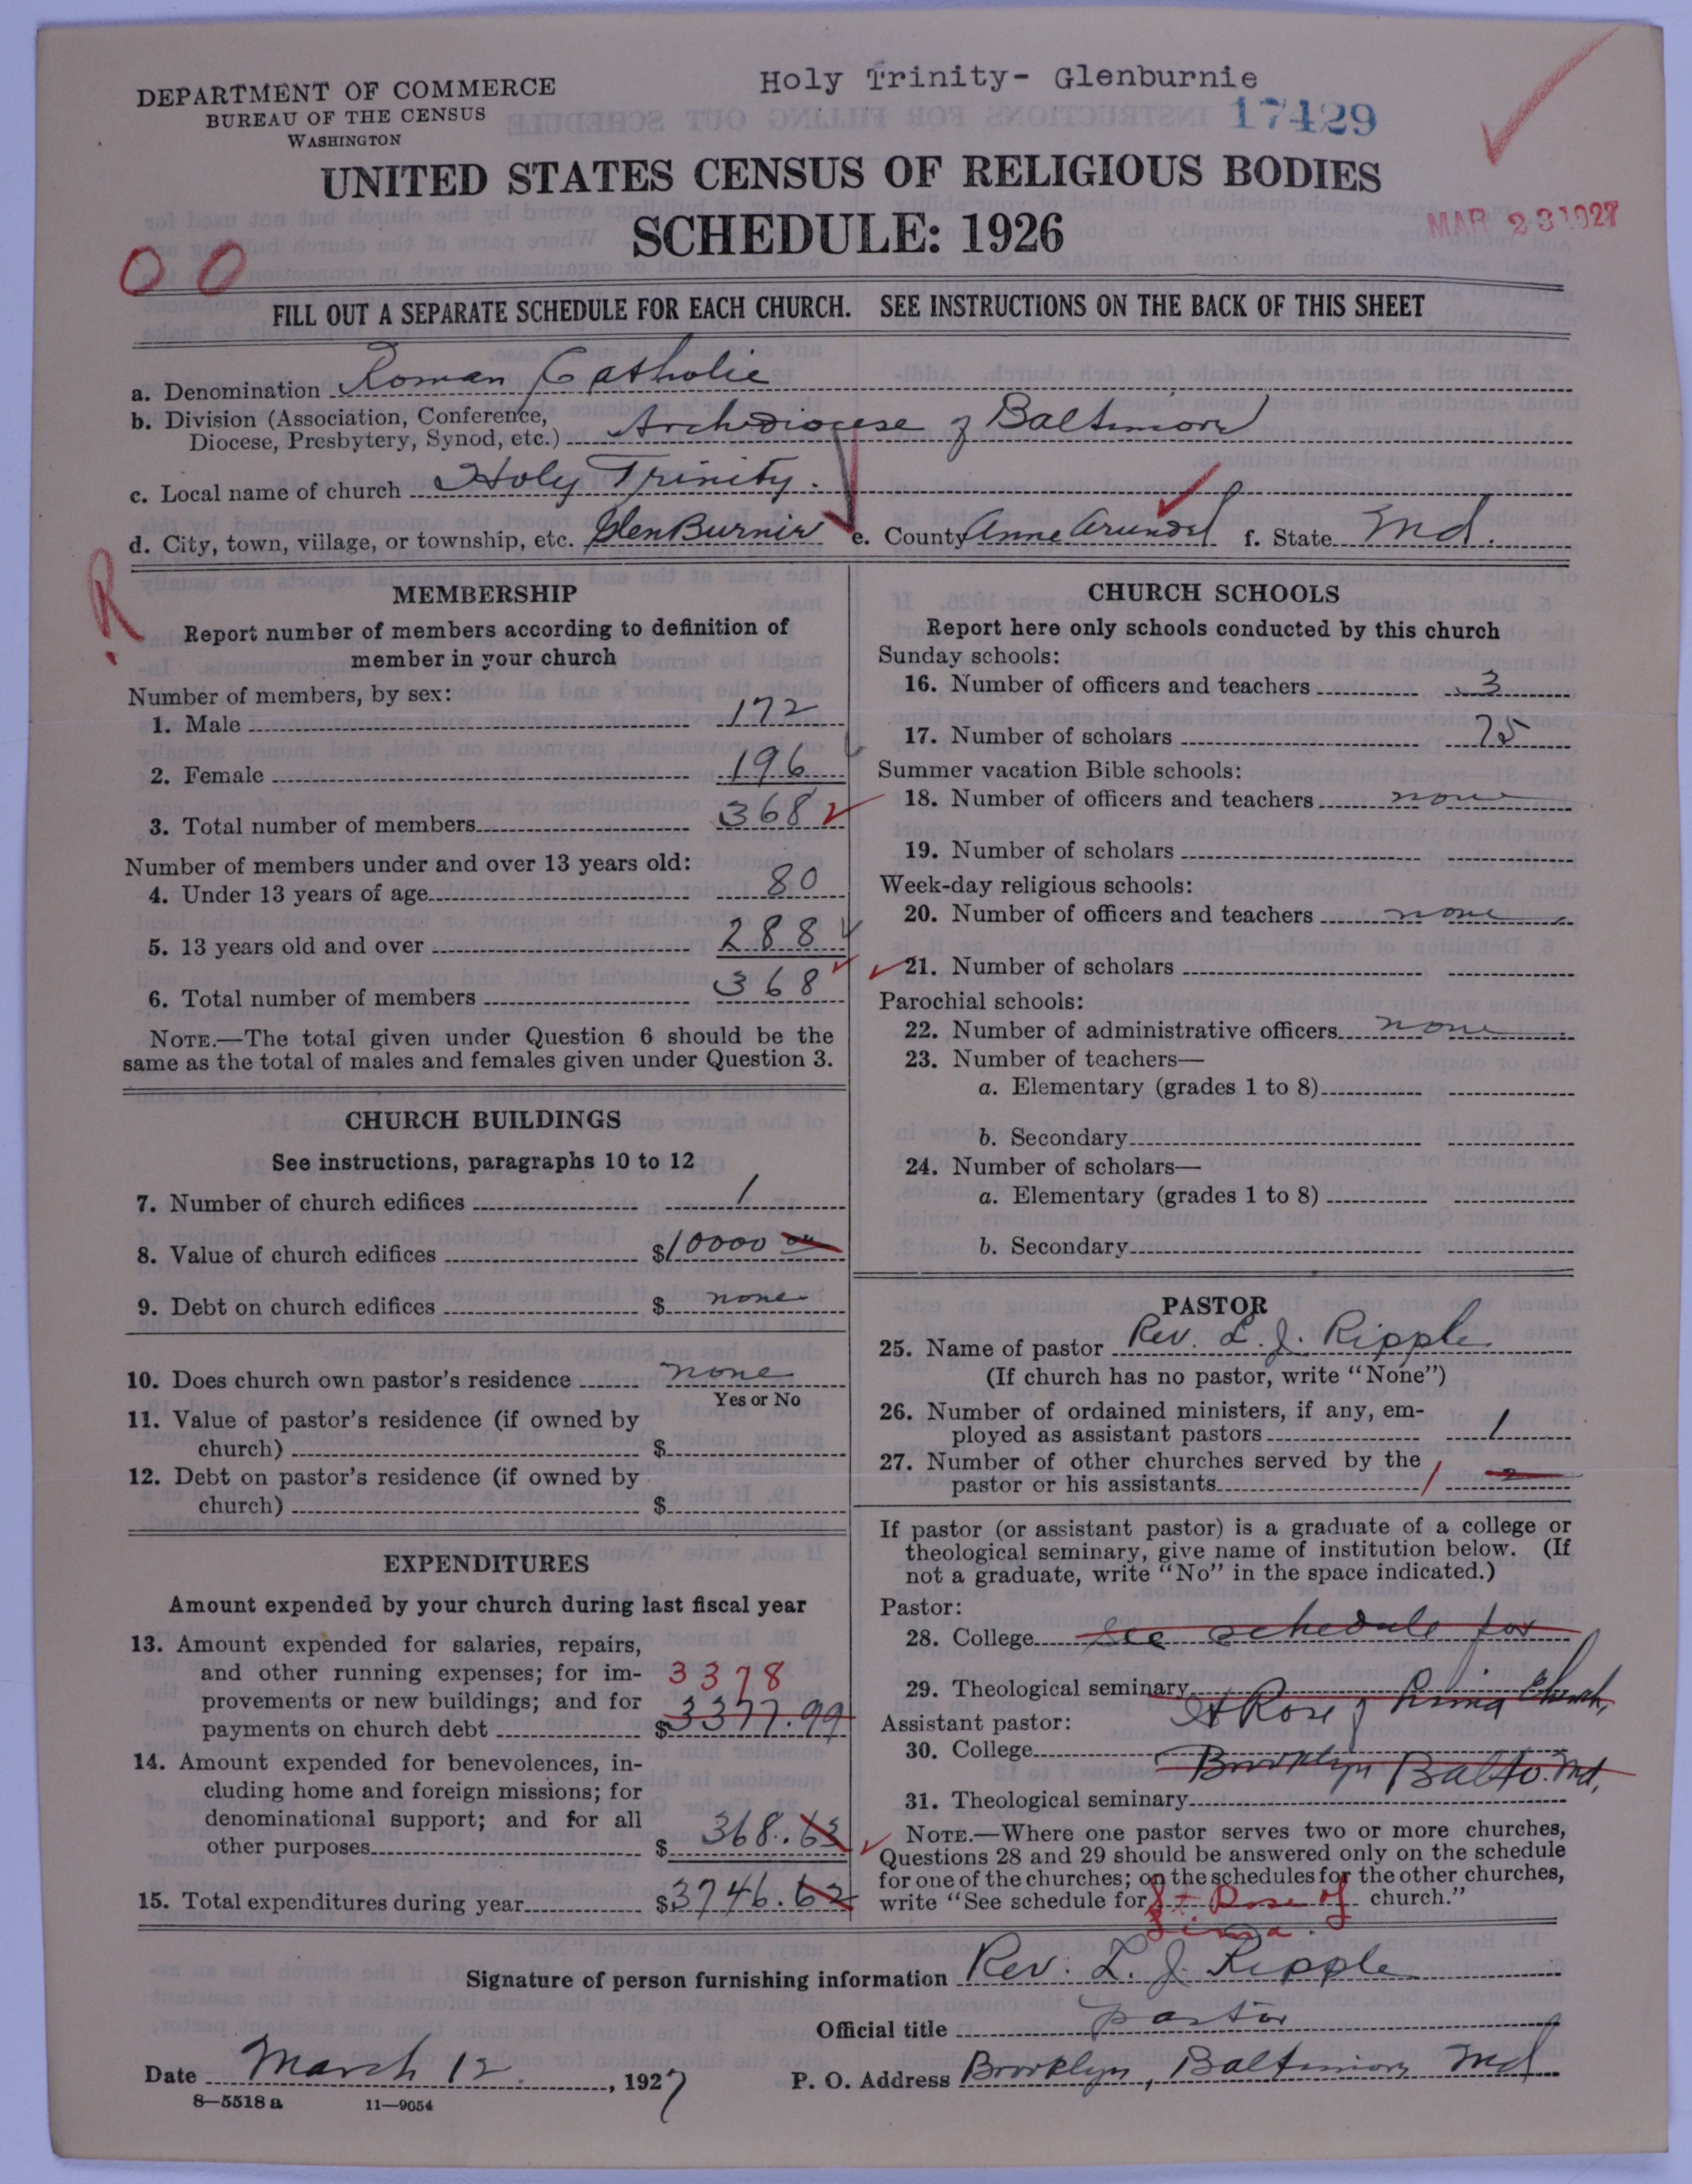 Holy Trinity- Glenburnie
DEPARTMENT OF COMMERCE
BUREAU OF THE CENSUS
WASHINGTON
17429
UNITED STATES CENSUS OF RELIGIOUS BODIES
SCHEDULE: 1926
MAR 23 1927
00
FILL OUT A SEPARATE SCHEDULE FOR EACH CHURCH. SEE INSTRUCTIONS ON THE BACK OF THIS SHEET
a. Denomination Roman Catholic
b. Division (Association, Conference,
Diocese, Presbytery, Synod, etc.) Archdiocese of Baltimore
c. Local name of church Holy Trinity.
d. City, town, village, or township, etc. Glen Burnie e. County Anne Arundel f. State Md.
R
MEMBERSHIP
Report number of members according to definition of
member in your church
Number of members, by sex:
1. Male 172
2. Female 196
3. Total number of members 368
Number of members under and over 13 years old:
4. Under 13 years of age 80
5. 13 years old and over 288
6. Total number of members 368
NOTE.—The total given under Question 6 should be the
same as the total of males and females given under Question 3.
CHURCH BUILDINGS
See instructions, paragraphs 10 to 12
7. Number of church edifices 1
8. Value of church edifices $10000 00
9. Debt on church edifices $ none
10. Does church own pastor's residence none
Yes or No
11. Value of pastor's residence (if owned by
church) $
12. Debt on pastor's residence (if owned by
church) $
EXPENDITURES
Amount expended by your church during last fiscal year
13. Amount expended for salaries, repairs,
and other running expenses; for im- 3378
provements or new buildings; and for
payments on church debt $3377.99
14. Amount expended for benevolences, in-
cluding home and foreign missions; for
denominational support; and for all
other purposes $ 368.63
15. Total expenditures during year $3746.62
CHURCH SCHOOLS
Report here only schools conducted by this church
Sunday schools:
16. Number of officers and teachers 3
17. Number of scholars 75
Summer vacation Bible schools:
18. Number of officers and teachers none
19. Number of scholars
Week-day religious schools:
20. Number of officers and teachers none
21. Number of scholars
Parochial schools:
22. Number of administrative officers none
23. Number of teachers—
a. Elementary (grades 1 to 8)
b. Secondary
24. Number of scholars—
a. Elementary (grades 1 to 8)
b. Secondary
PASTOR
25. Name of pastor Rev. L. J. Ripple
(If church has no pastor, write "None")
26. Number of ordained ministers, if any, em-
ployed as assistant pastors 1
27. Number of other churches served by the
pastor or his assistants 1 2
If pastor (or assistant pastor) is a graduate of a college or
theological seminary, give name of institution below. (If
not a graduate, write "No" in the space indicated.)
Pastor:
28. College see schedule for
29. Theological seminary St Rose of Lima Church,
Assistant pastor:
30. College Brooklyn Balto. Md.
31. Theological seminary
NOTE.—Where one pastor serves two or more churches,
Questions 28 and 29 should be answered only on the schedule
for one of the churches; on the schedules for the other churches,
write "See schedule for St Rose of church."
Lima.
Signature of person furnishing information Rev. L. J. Ripple
Official title pastor
Date March 12, 1927 P. O. Address Brooklyn, Baltimore Md
8—5518 a 11—9054